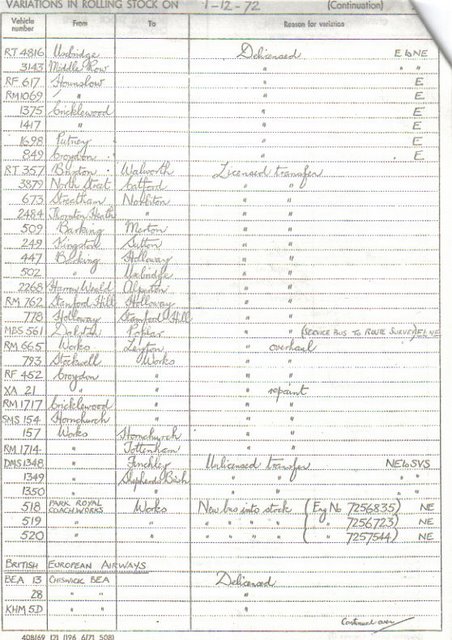 VARIATIONS IN ROLLING STOCK ON 1-12-72 (Continuation)
Vehicle number From To Reason for variation
RT 4816 Uxbridge Delicensed E to NE
3143 Middle Row " " "
RF 617 Hounslow " E
RM 1069 " " E
1375 Cricklewood " E
1417 " " E
1698 Putney " E
849 Croydon " E
RT 357 Brixton Walworth Licensed transfer
3879 North Street Catford " "
673 Streatham Norbiton " "
2484 Thornton Heath " " "
509 Barking Merton " "
249 Kingston Sutton " "
447 Barking Holloway " "
502 " Uxbridge " "
2268 Harrow Weald Alperton " "
RM 762 Stamford Hill Holloway " "
778 Holloway Stamford Hill " "
MBS 561 Dalston Poplar " " (SERVICE BUS TO ROUTE SURVEY) E to NE
RM 665 Works Leyton " overhaul
793 Stockwell Works " "
RF 452 Croydon " " "
XA 21 " " " repaint
RM 1717 Cricklewood " " "
SMS 154 Hornchurch " " "
157 Works Hornchurch " "
RM 1714 " Tottenham " "
DMS 1348 " Finchley Unlicensed transfer NE to SVS
1349 " Shepherds Bush " " " "
1350 " " " " " "
518 PARK ROYAL COACHWORKS Works New bus into stock (Eng No 7256835) NE
519 " " " " " " " ( " 7256723) NE
520 " " " " " " " ( " 7257544) NE
BRITISH EUROPEAN AIRWAYS
BEA 13 CHISWICK BEA Delicensed
28 " " "
KHM 5D " " "
Continued over
408169 (2) (196 6171 508)